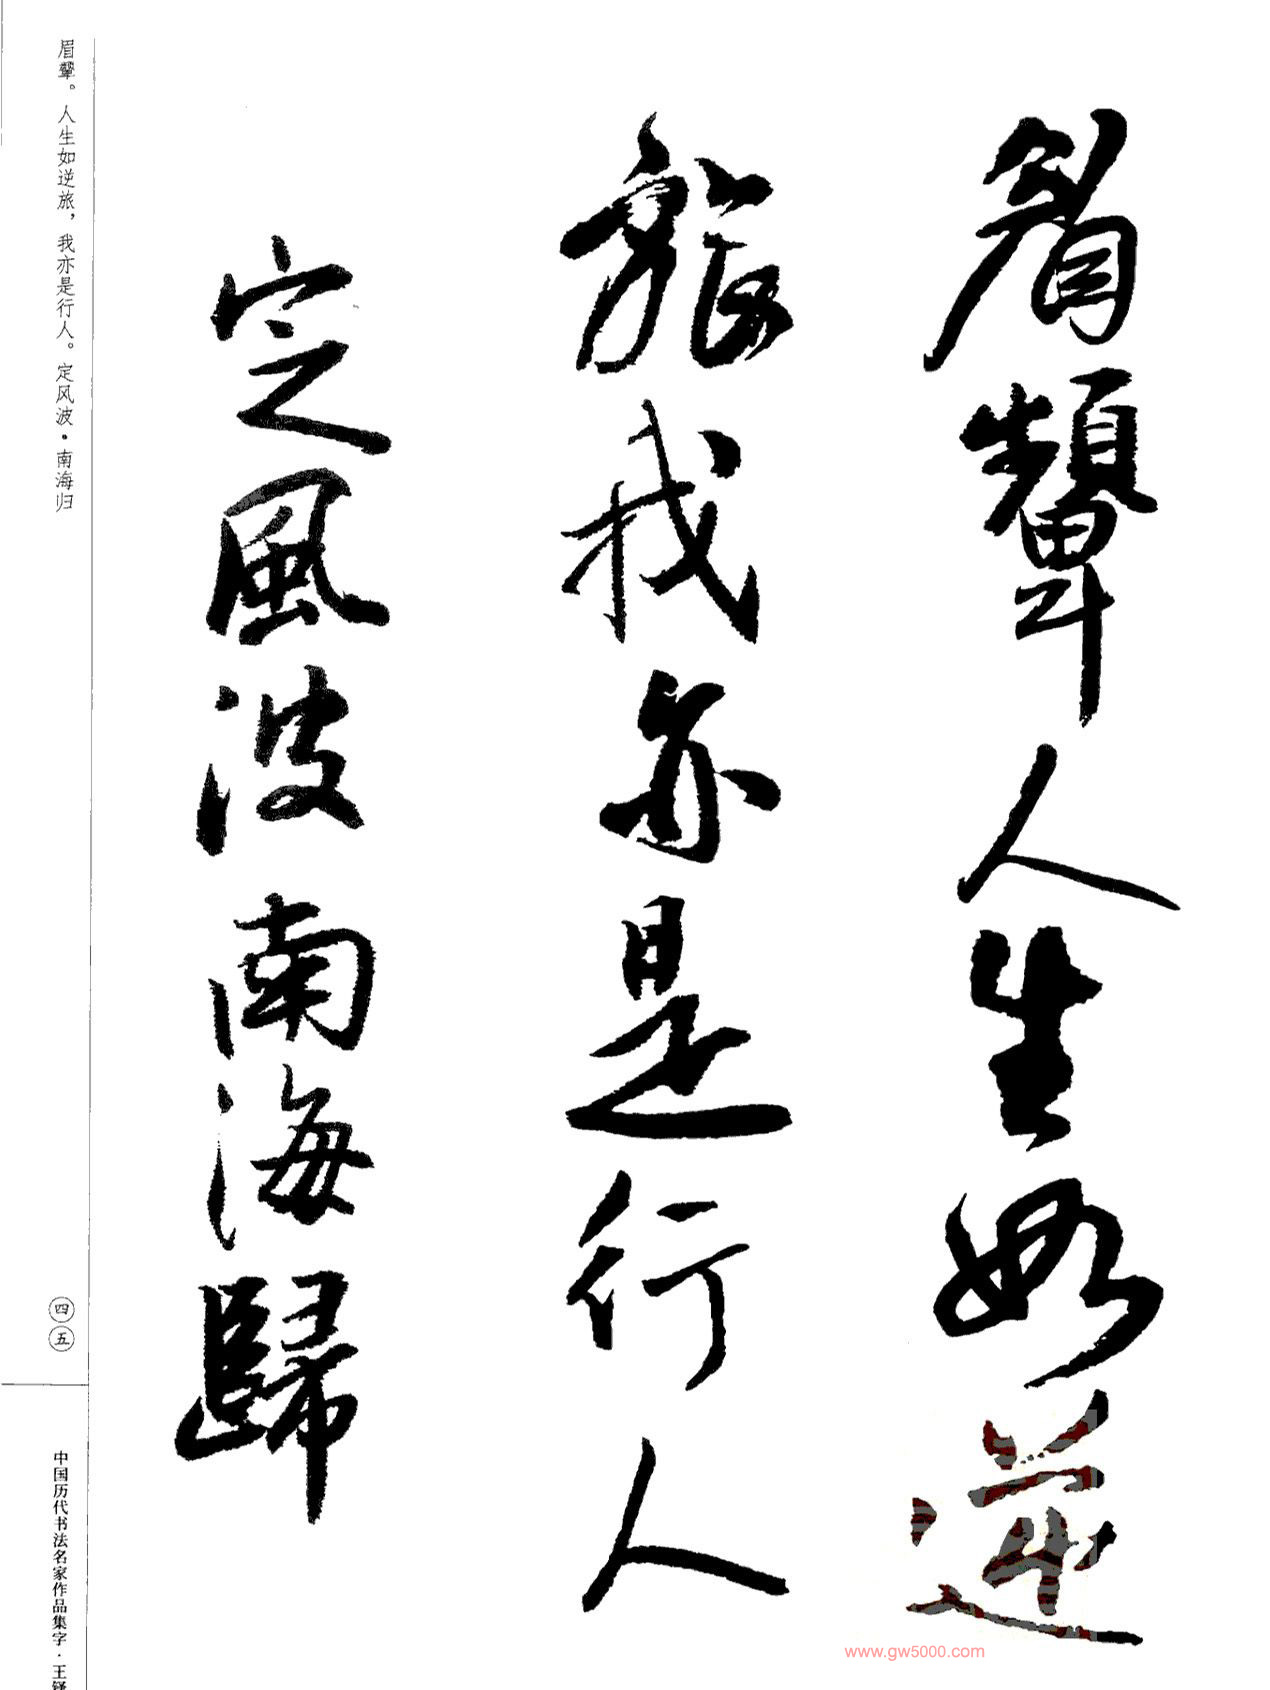 眉顰人生如逆
旅我亦是行人
定風波南海歸
眉颦。人生如逆旅，我亦是行人。定风波·南海归
四五
中国历代书法名家作品集字·王铎
www.gw5000.com